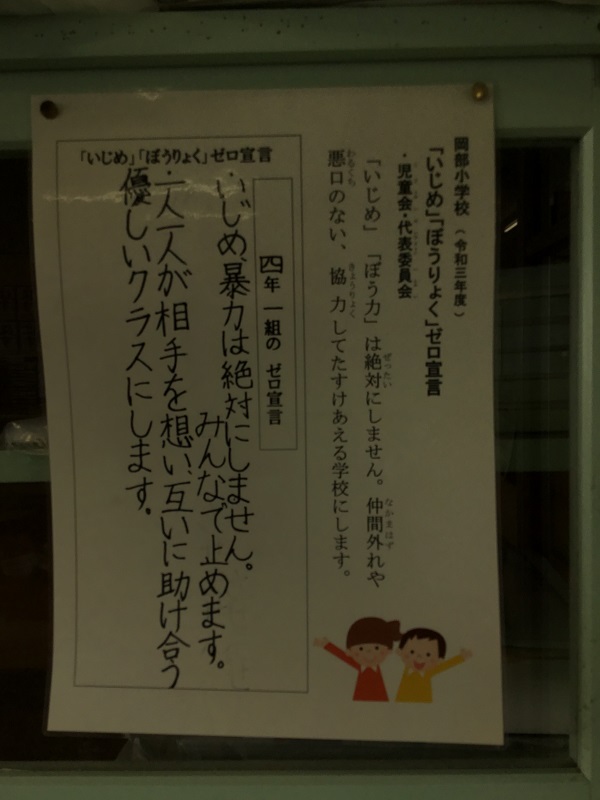 岡部小学校（令和三年度）
「いじめ」「ぼうりょく」ゼロ宣言
・児童会・代表委員会
「いじめ」「ぼう力」は絶対にしません。仲間外れや
悪口のない、協力してたすけあえる学校にします。
「いじめ」「ぼうりょく」ゼロ宣言
四年一組の ゼロ宣言
・いじめ、暴力は絶対にしません。
みんなで止めます。
・一人一人が相手を想い、互いに助け合う
優しいクラスにします。